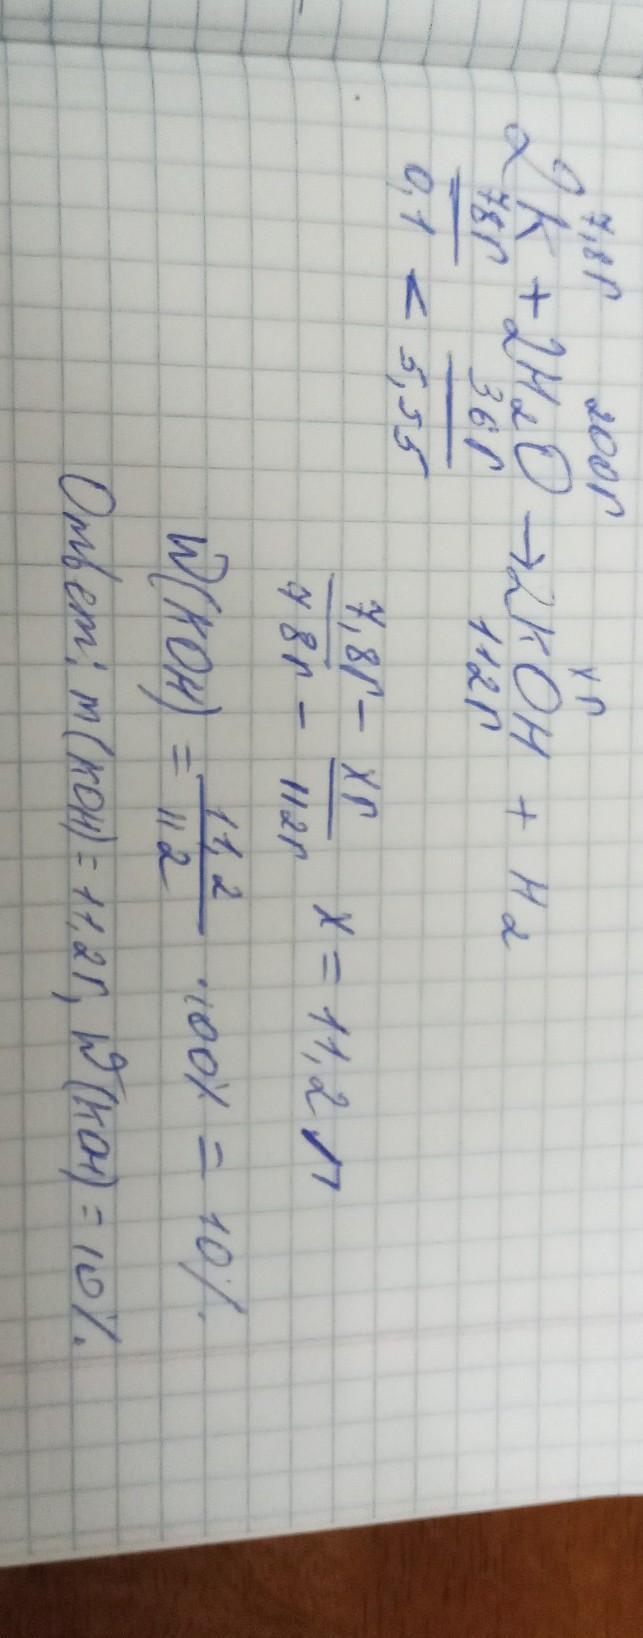 7,8г 200г xг
2K + 2H2O → 2KOH + H2
78г 36г 112г
0,1 < 5,55
7,8г - xг
78г - 112г x = 11,2 г
W(KOH) = 11,2 / 112 · 100% = 10%.
Ответ: m(KOH) = 11,2г, W(KOH) = 10%.